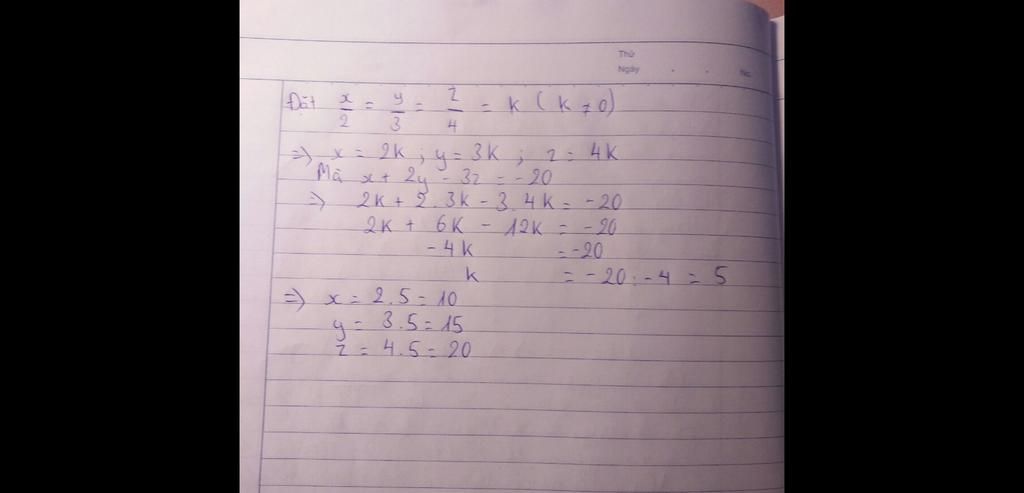 Thứ
Ngày . . No.
Đặt x/2 = y/3 = z/4 = k (k ≠ 0)
=> x = 2k ; y = 3k ; z = 4k
Mà x + 2y - 3z = -20
=> 2k + 2.3k - 3.4k = -20
2k + 6k - 12k = -20
-4k = -20
k = -20 : -4 = 5
=> x = 2.5 = 10
y = 3.5 = 15
z = 4.5 = 20